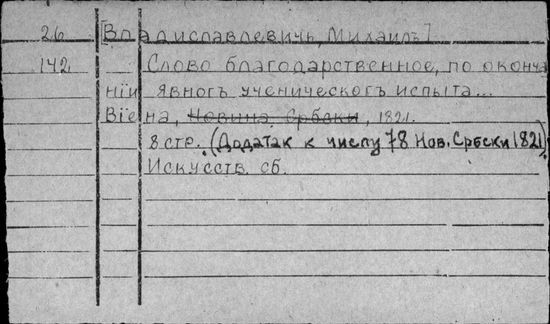 26 [Владиславлевичь, Михаилъ]
142 Слово благодарственное, по оконча
нiи явногъ ученическогъ испыта...
Вiена, Новина Србски, 1821.
8 стр. (Додатак к числу 78 Нов. Србски 1821)
Искусств. сб.